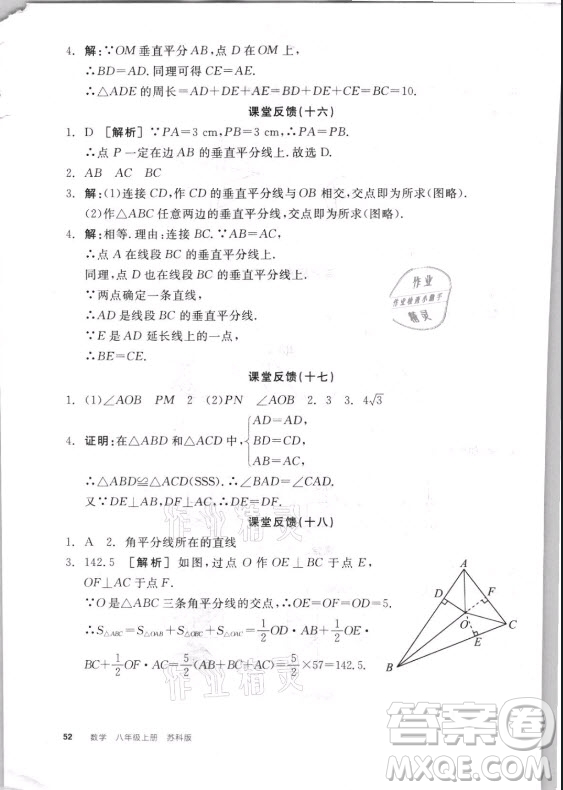 4. 解:∵OM 垂直平分 AB,点 D 在 OM 上,
∴BD=AD. 同理可得 CE=AE.
∴△ADE 的周长=AD+DE+AE=BD+DE+CE=BC=10.
课堂反馈(十六)
1. D [解析] ∵PA=3 cm,PB=3 cm,∴PA=PB.
∴点 P 一定在边 AB 的垂直平分线上. 故选 D.
2. AB AC BC
3. 解:(1)连接 CD,作 CD 的垂直平分线与 OB 相交,交点即为所求(图略).
(2)作△ABC 任意两边的垂直平分线,交点即为所求(图略).
4. 解:相等. 理由:连接 BC. ∵AB=AC,
∴点 A 在线段 BC 的垂直平分线上.
同理,点 D 也在线段 BC 的垂直平分线上.
∵两点确定一条直线,
∴AD 是线段 BC 的垂直平分线.
∵E 是 AD 延长线上的一点,
∴BE=CE.
作业
精灵
课堂反馈(十七)
1. (1)∠AOB PM 2 (2)PN ∠AOB 2. 3 3. 4√3
4. 证明:在△ABD 和△ACD 中, { AD=AD,
BD=CD,
AB=AC,
∴△ABD≌△ACD(SSS). ∴∠BAD=∠CAD.
又∵DE⊥AB,DF⊥AC,∴DE=DF.
作业精灵
课堂反馈(十八)
1. A 2. 角平分线所在的直线
3. 142.5 [解析] 如图,过点 O 作 OE⊥BC 于点 E,
OF⊥AC 于点 F.
∵O 是△ABC 三条角平分线的交点,
∴OE=OF=OD=5.
∴S△ABC=S△AOB+S△BOC+S△OAC=1/2 OD·AB+1/2 OE·
BC+1/2 OF·AC=5/2(AB+BC+AC)=5/2×57=142.5.
A
D
F
O
C
E
B
作业精灵
52 数学 八年级上册 苏科版
答案卷